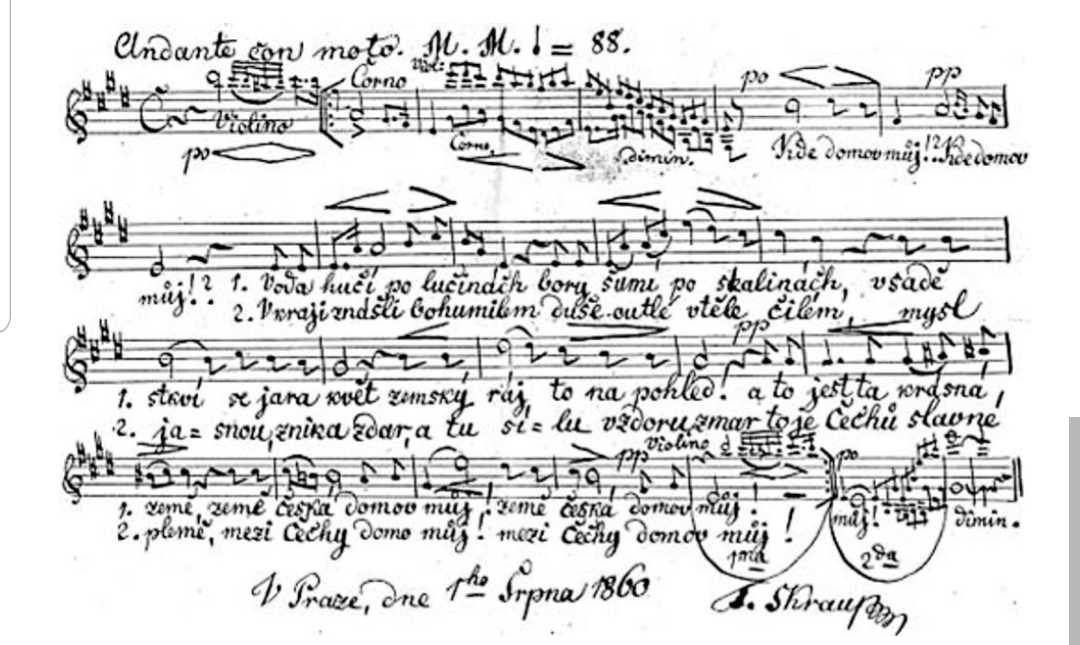 Andante con moto. M. M. ♩ = 88.
Corno Viol:
Violino po pp
po Corno. Dimin. Kde domov můj!? Kde domov
můj!? 1. Voda hučí po lučinách bory šumí po skalinách, v sadě
2. V kraji znášli bohumilém duše outlé v těle čilém, mysl
pp
1. stkví se jara květ zemský ráj, to na pohled! a to jest ta krásná,
2. ja= snou, znik a zdar, a tu sí= lu vzdoru, zmar to je Čechů slavné
Violino
pp po
1. země, země česká domov můj! země česká domov můj! můj! dimin.
2. plémě, mezi Čechy domo můj! mezi Čechy domov můj!
1ma 2da
V Praze, dne 1ho Srpna 1860 F. Skraup